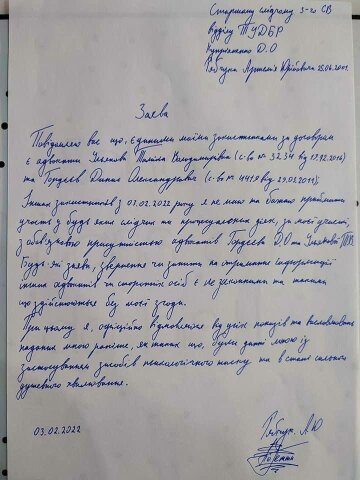 Старшому слідчому 3-го СВ
Відділу ТУДБР
Купріяненко Д.О
Рябчука Артемія Юрійовича
Заява
Повідомляю вас що, єдиними моїми захисниками за договорам
є адвокати Ульянова Поліна Володимирівна (с-во № 3234 від
та Гордєєв Динис Олександрович (с-во № 4419 від 29.03.2011);
Інших захисників з 03.02.2022 року я не маю та бажаю приймати
участь у будь яких слідчих та процесуальних діях, за моєї участі,
з обов'язковою присутністю адвокатів Гордєєва Д.О та Ульянової П.В.
Будь-які заяви, звернення чи запити на отримання інформації
інших адвокатів чи сторонніх осіб є не законними та такими
що здійснюються без моєї згоди.
При цьому я, офіційно відмовляюся від усіх показів та висловлювань
наданих мною раніше, як таких що, були дані мною із
застосуванням засобів психологічного тиску та в стані сильного
душевного хвилювання.
03.02.2022
Рябчук А.Ю